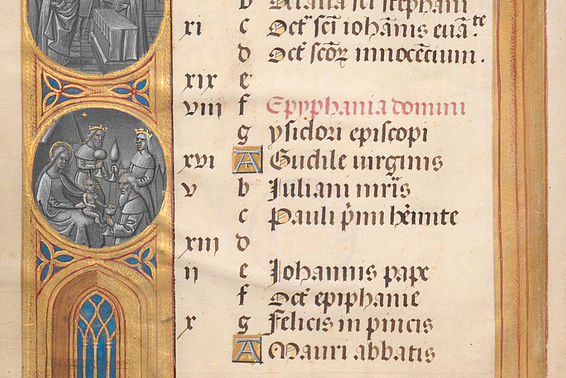 b Octava sci stephani
xi c Oct̉ scī iohānis euā.te
d Oct̉ scōꝝ innocentium.
xix e
viii f Epyphania domini
g ysidori episcopi
xvi A Gudile uirginis
v b Iuliani mr̄is
c Pauli p̄mi hēmite
xiii d
ii e Iohannis pape
f Oct̉ epiphanie
x g Felicis in pincis
A Mauri abbatis